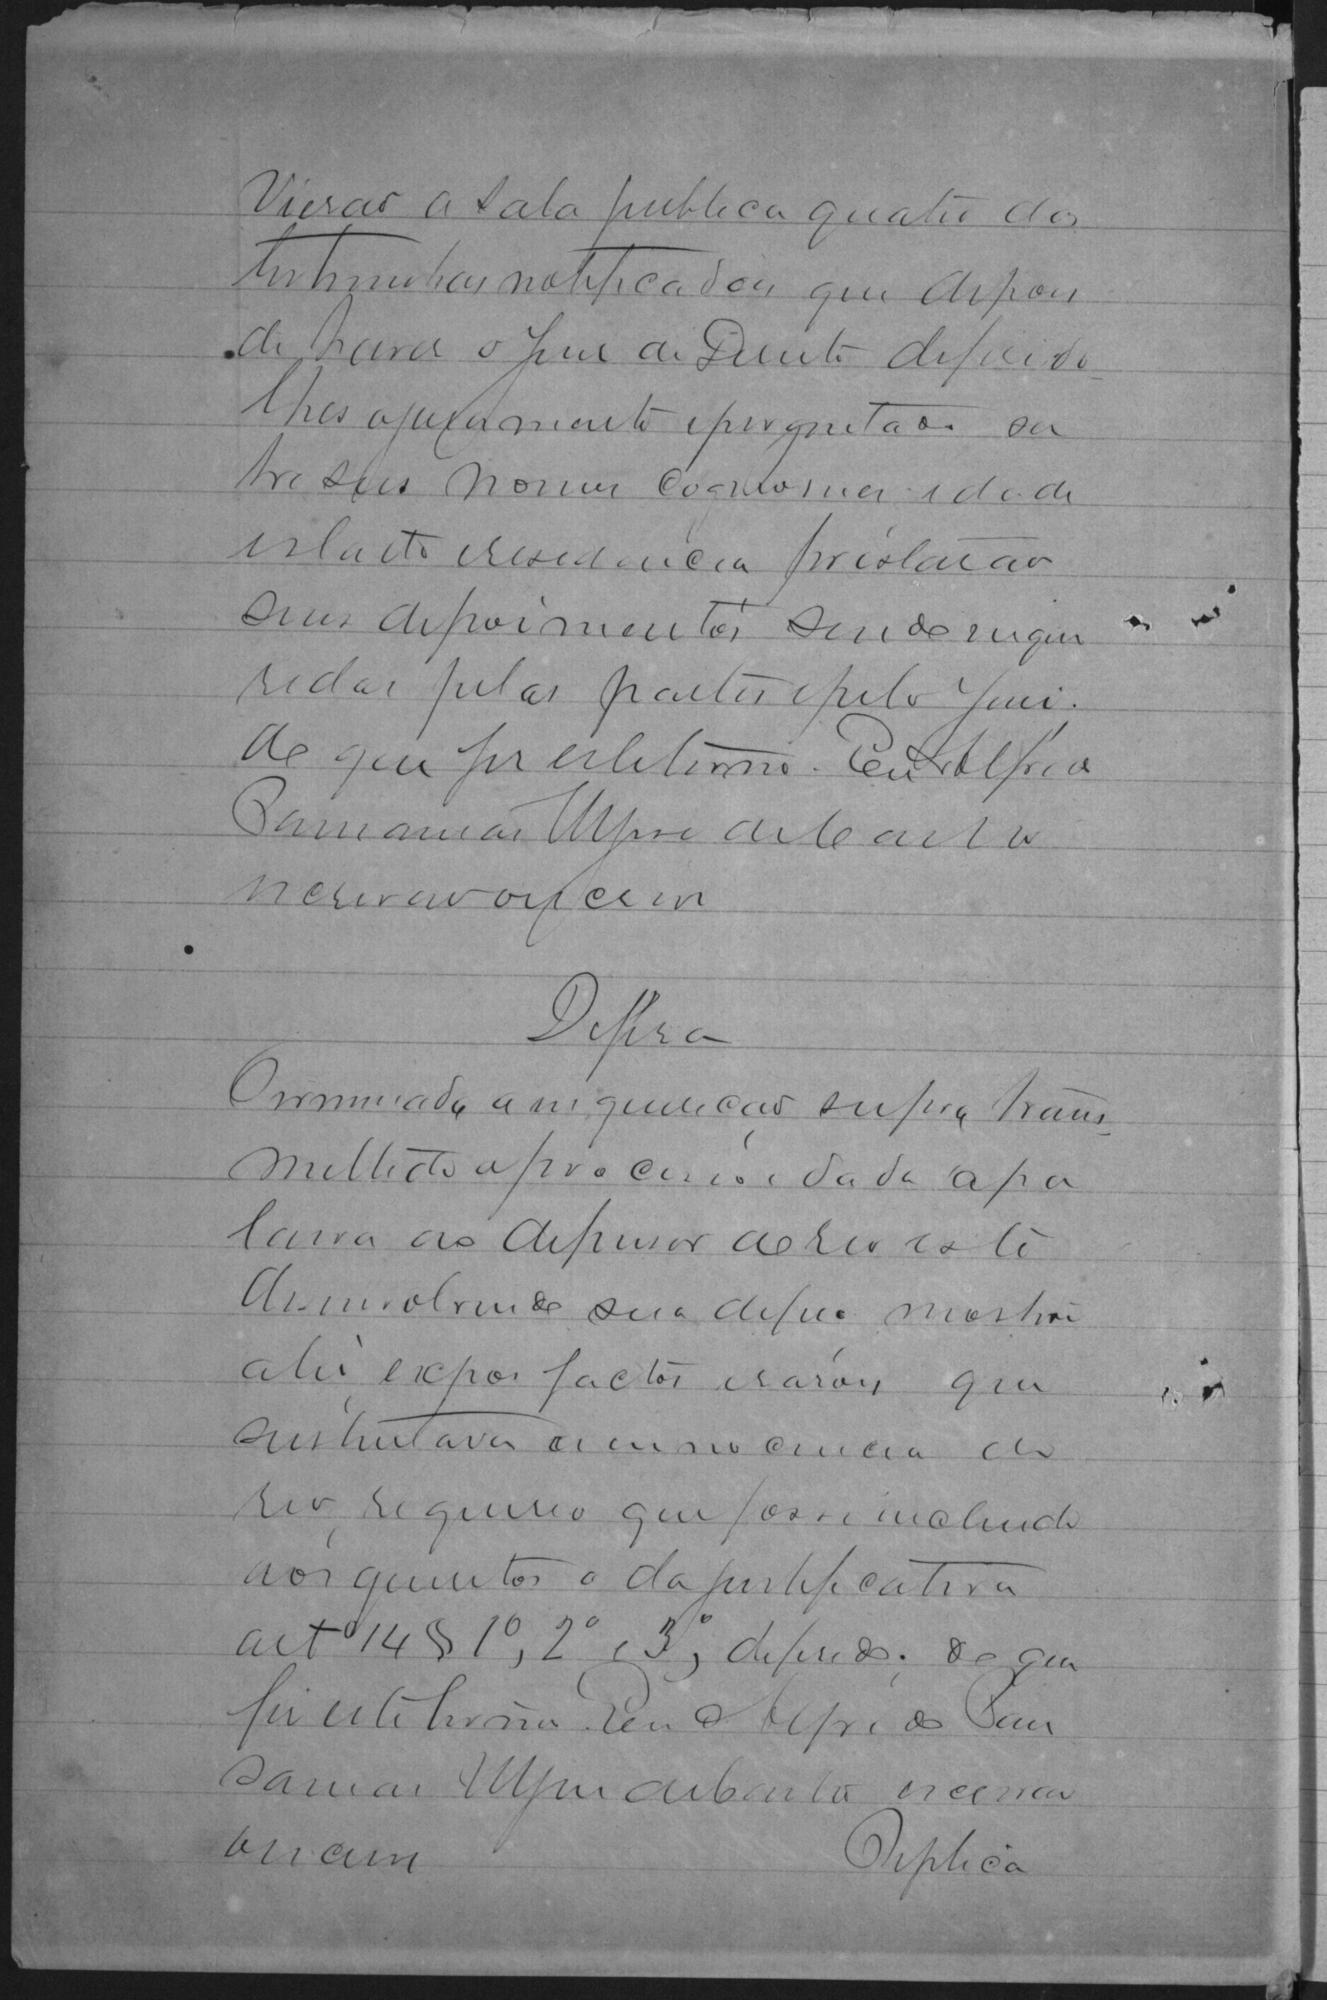 Vierão a sala publica quatro das
testemunhas notificadas que depois
de haver o Juiz de Direito deferido
lhes o juramento e perguntado so
bre seus nomes cognomes idade
estado e residencia prestarão
seus depoimentos sendo inque
ridas pelas partes e pelo Jury.
de que fiz este termo. Eu Alfredo
de Castro
escrivão o escrevi
Defesa
Terminada a inquirição supra trans
mettido o processo e dada a pa
lavra ao defensor do reo este
desenvolvendo sua defesa mostrou
a lei expos factos e rasões que
sustentavão a innocencia do
reo, requereo que fosse incluido
aos quesitos o da justificativa
artº 14 § 1º, 2º e 3º, deferido; do que
fiz este termo. Eu Alfredo
de Castro escrivão
escrevi Replica